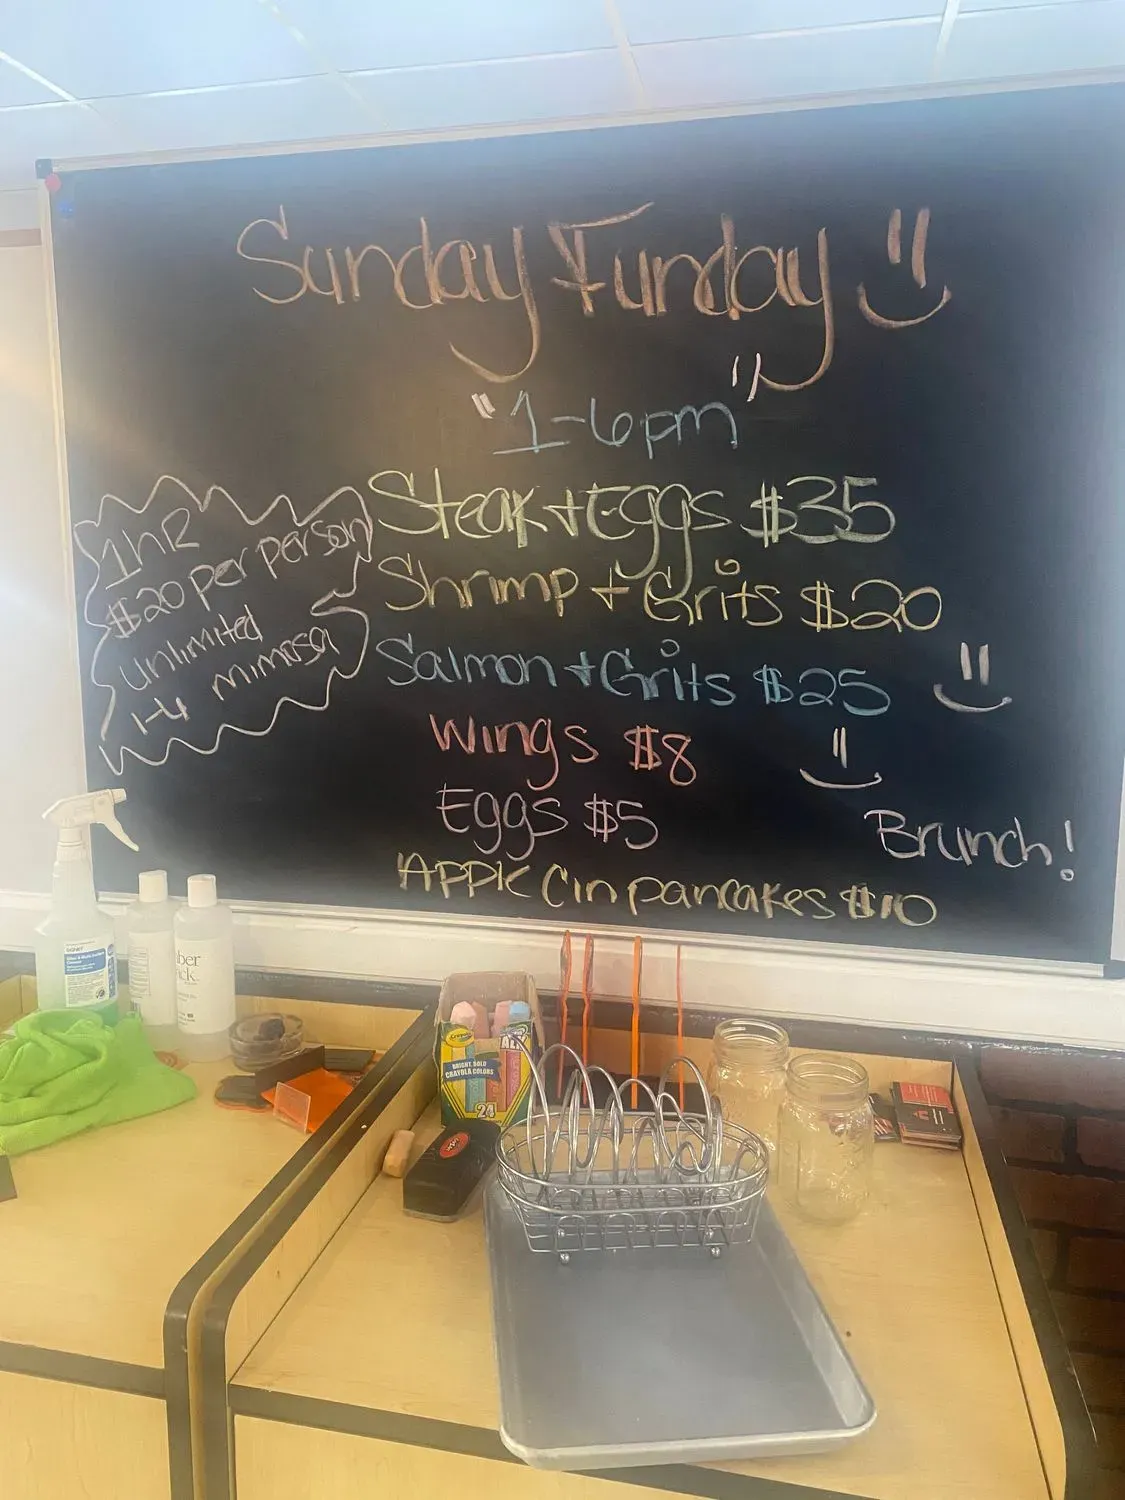 Sunday Funday
"1-6pm"
Steak + Eggs $35
Shrimp + Grits $20
Salmon + Grits $25
Wings $8
Eggs $5
Apple Cin pancakes $10
Brunch!
1hR
$20 per person
unlimited
mimosa
1-4
Crayola
BRIGHT, BOLD
CRAYOLA COLORS
24